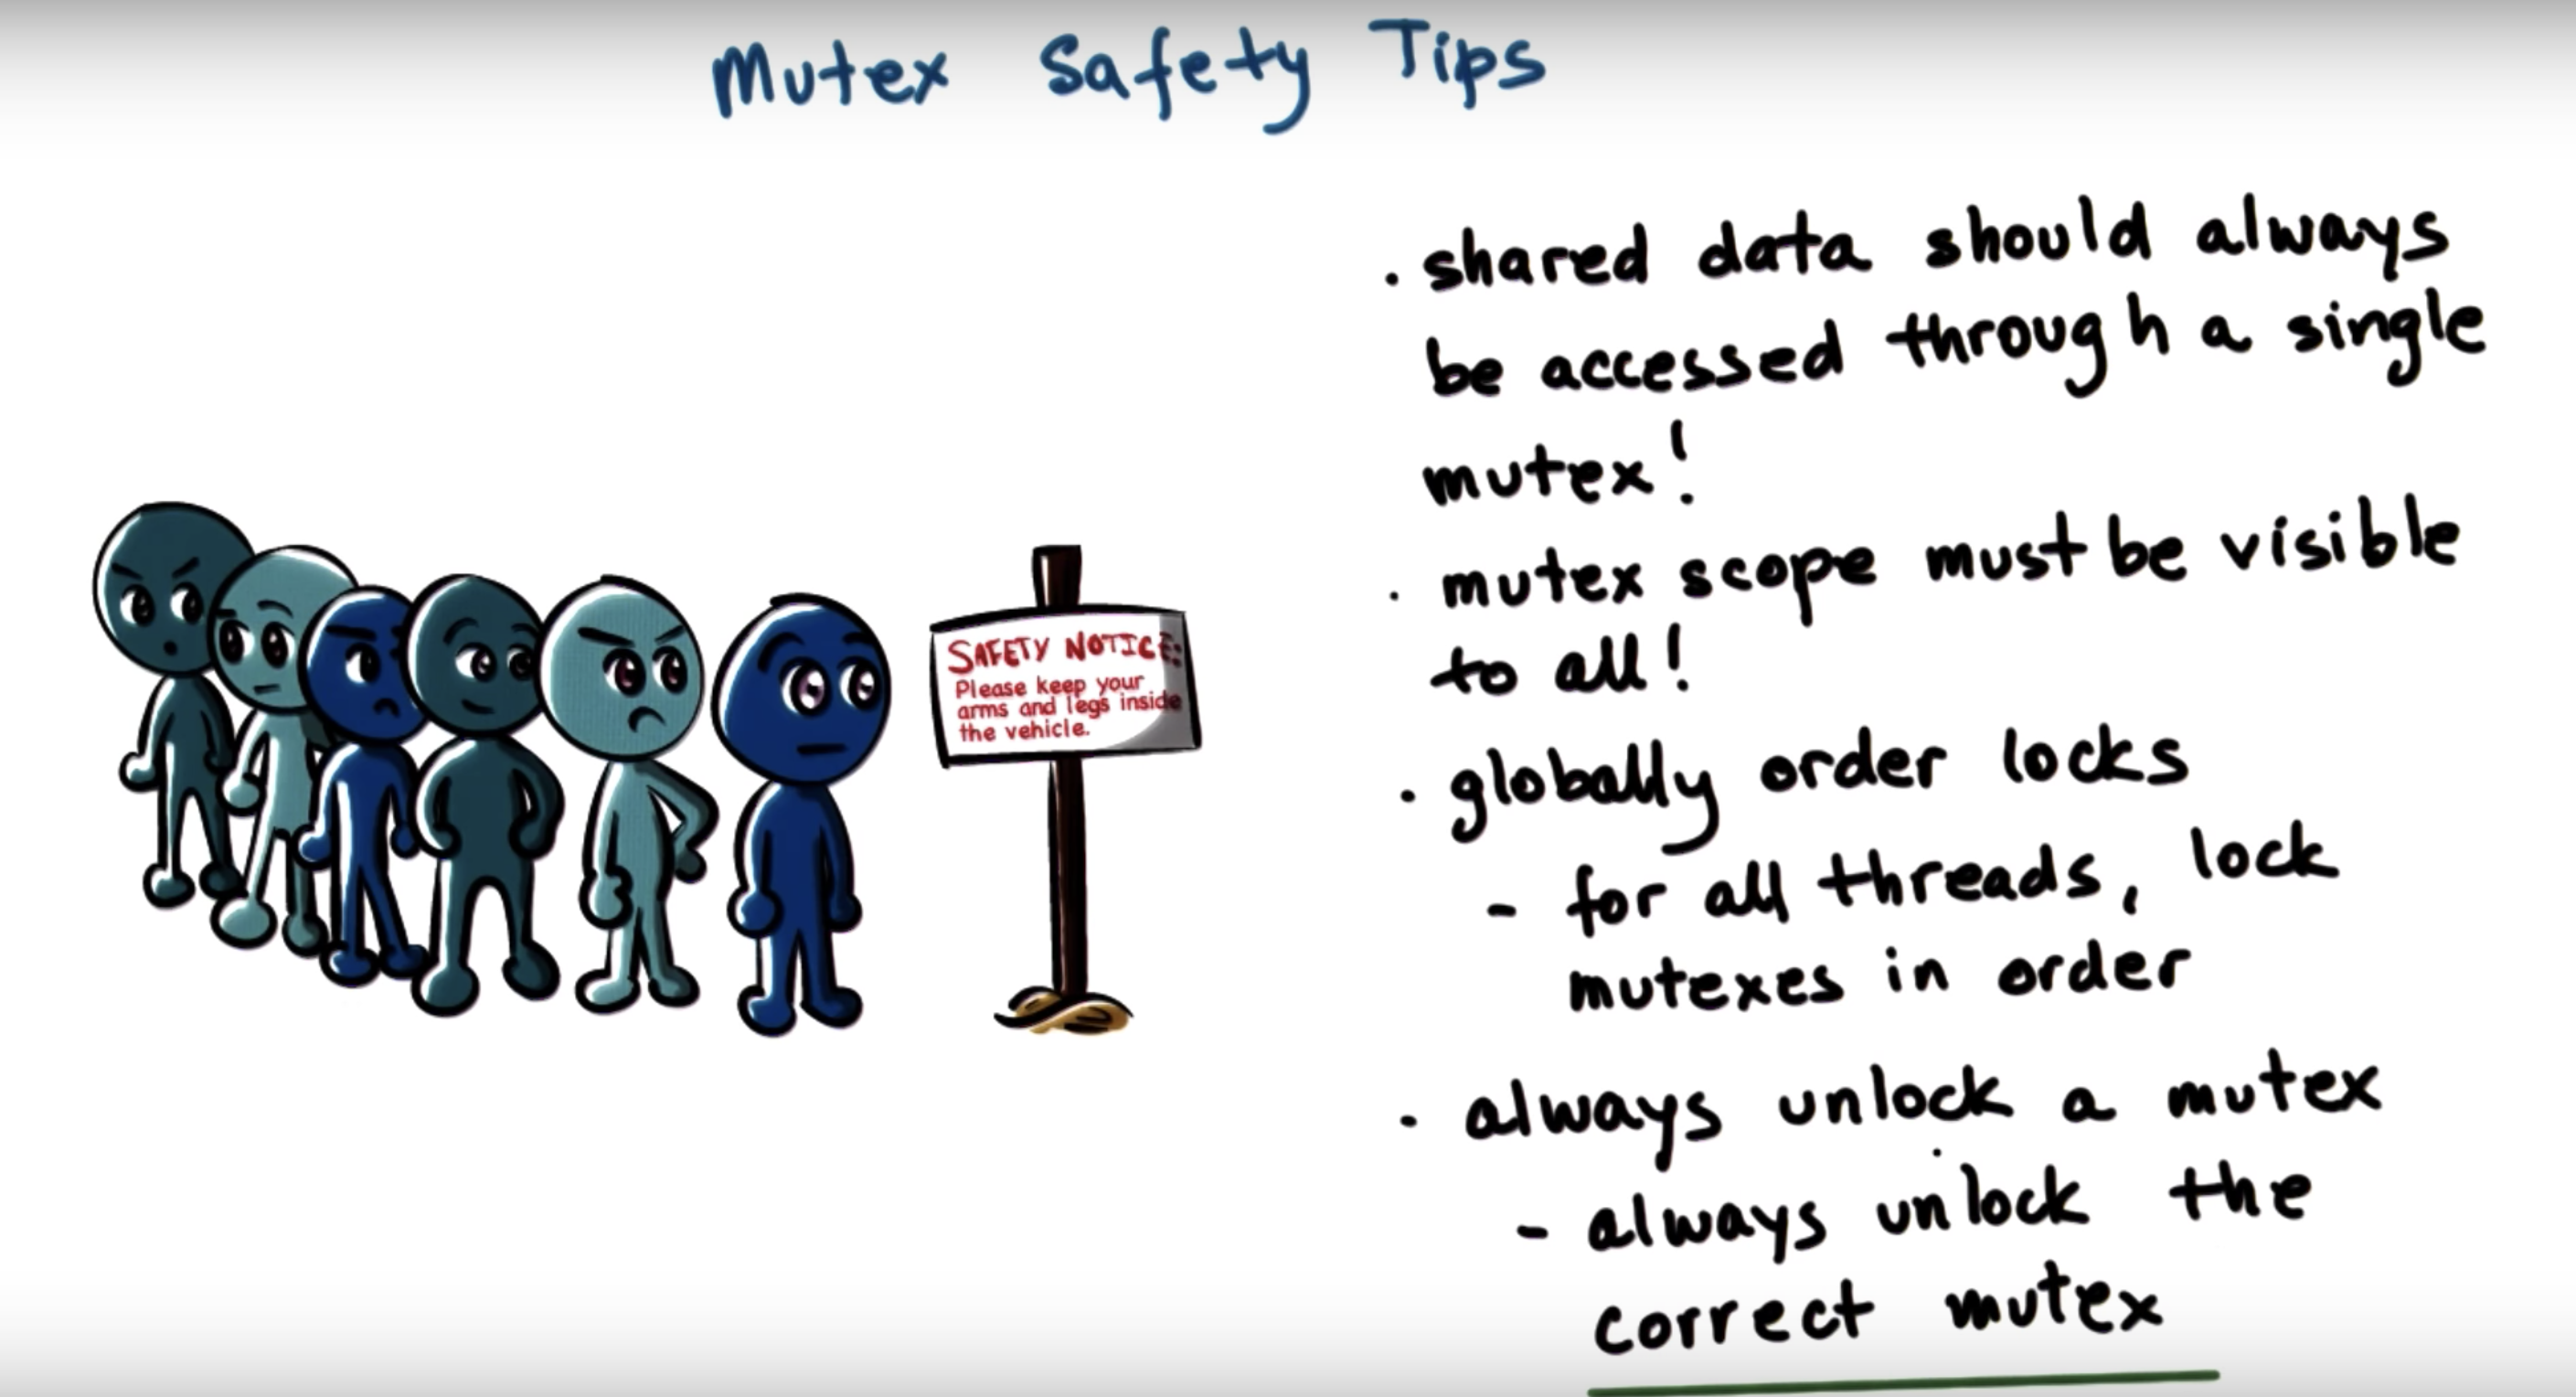 Mutex Safety Tips
SAFETY NOTICE:
Please keep your
arms and legs inside
the vehicle.
• shared data should always
be accessed through a single
mutex!
• mutex scope must be visible
to all!
• globally order locks
- for all threads, lock
mutexes in order
• always unlock a mutex
- always unlock the
correct mutex